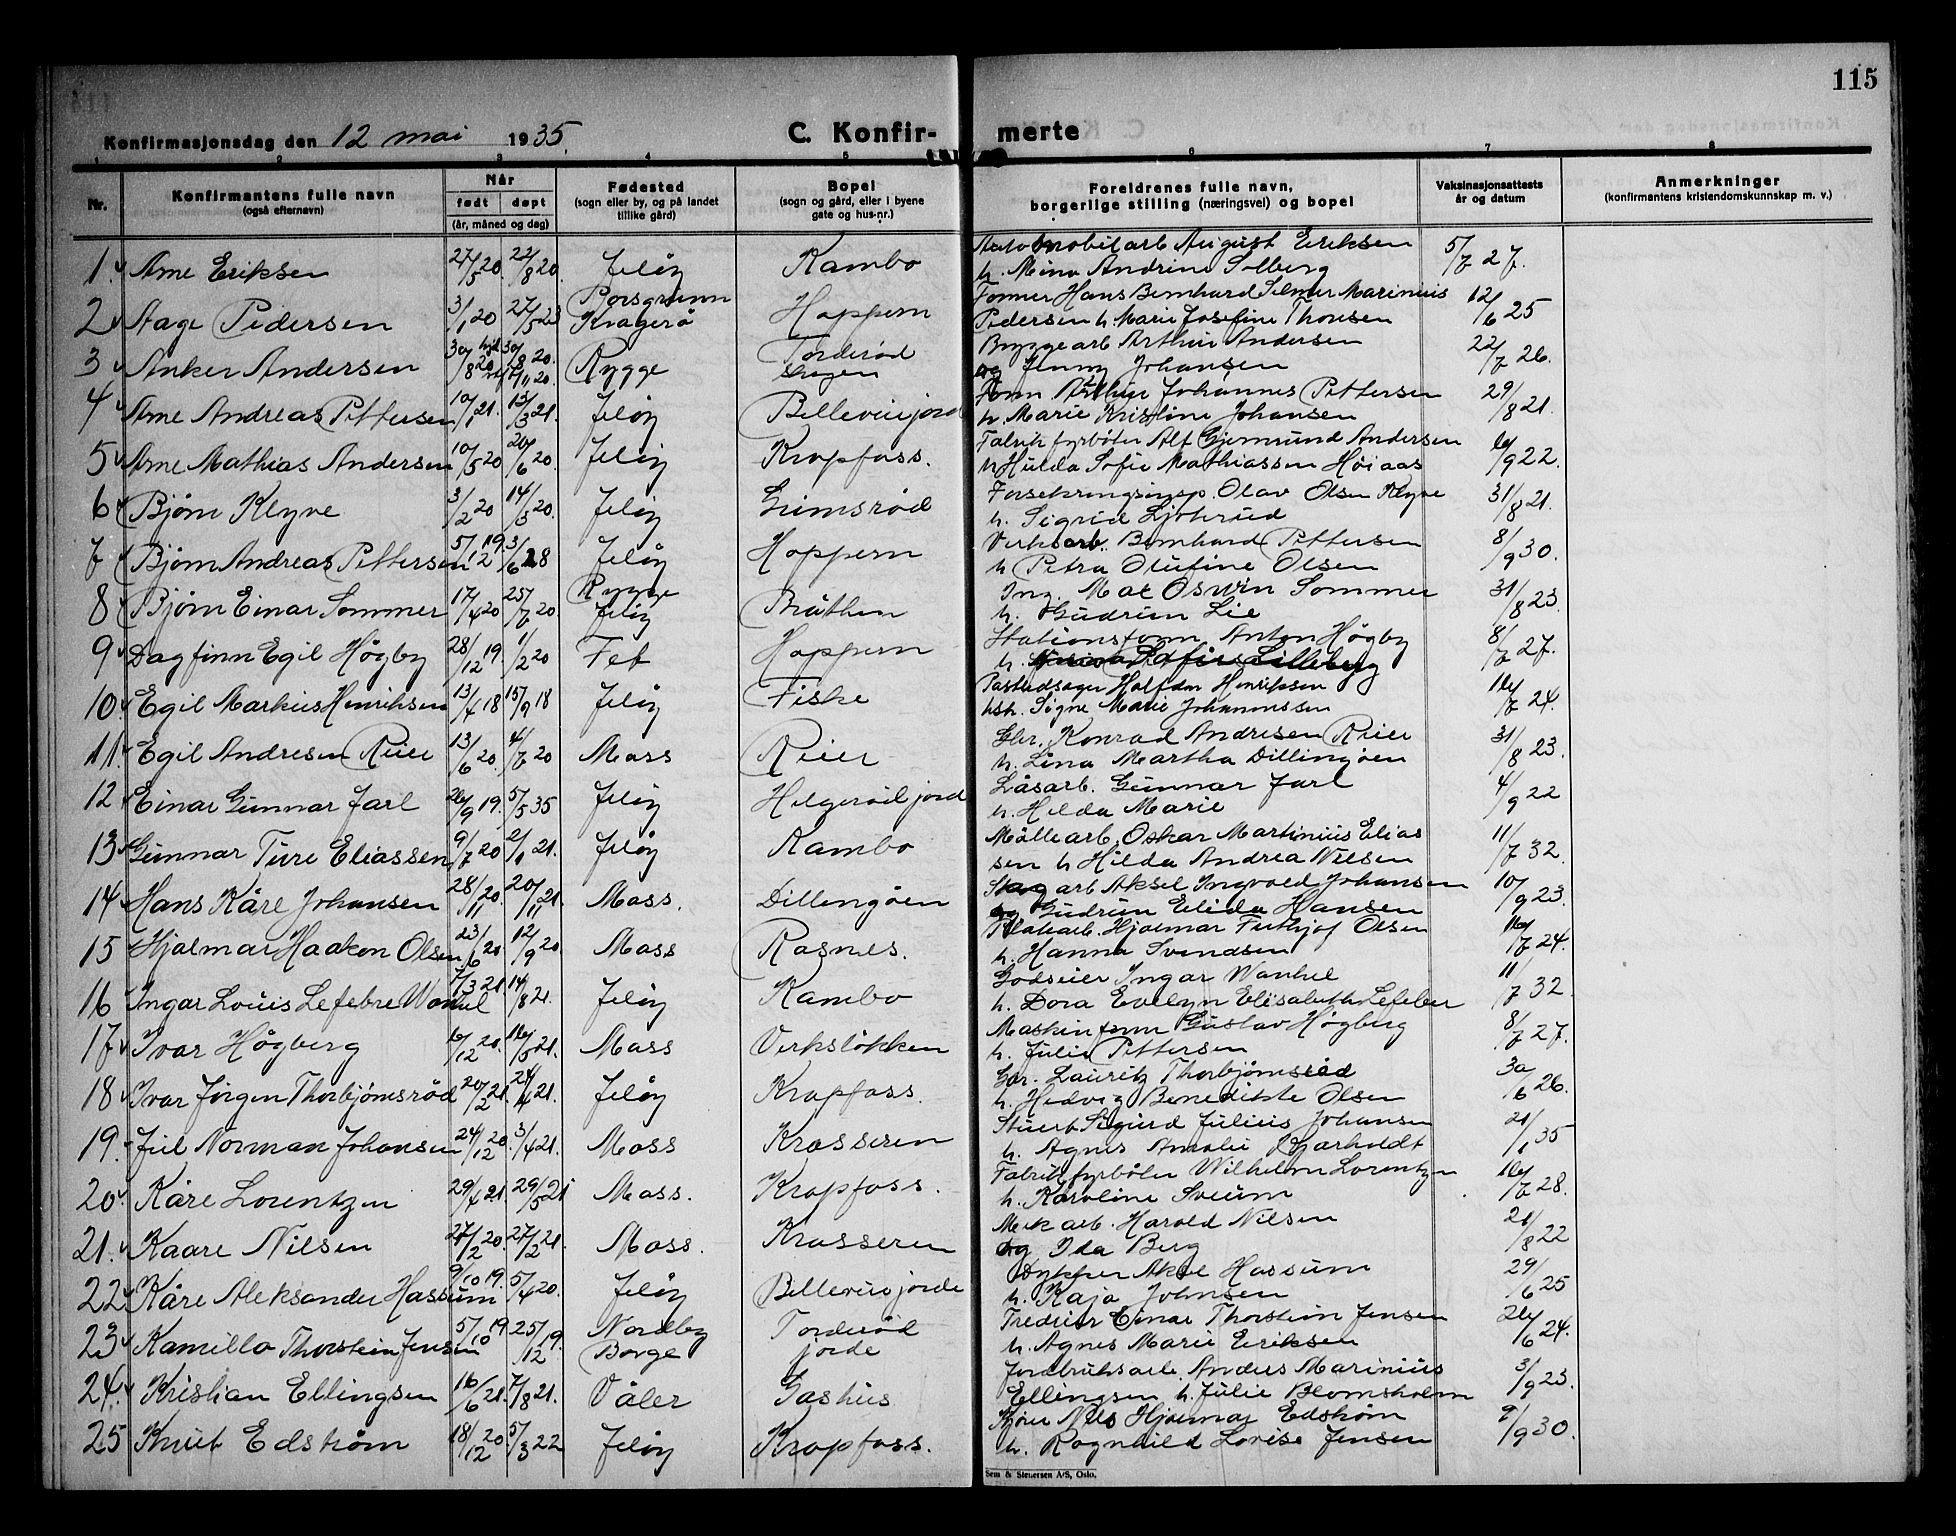 115
Konfirmasjonsdag den 12 mai 1935.
C. Konfir- merte
1 2 3 4 5 6 7 8
Nr. Konfirmantens fulle navn (også efternavn) Når født døpt (år, måned og dag) Fødested (sogn eller by, og på landet tillike gård) Bopel (sogn og gård, eller i byene gate og hus-nr.) Foreldrenes fulle navn, borgerlige stilling (næringsvei) og bopel Vaksinasjonsattests år og datum Anmerkninger (konfirmantens kristendomskunnskap m. v.)
1. Arne Eriksen 27/5 20. 22/8 20. Jeløy Kambo Automobilarb August Eriksen 5/7 27.
h. Mina Andrine Solberg
2 Aage Pedersen 3/1 20 27/5 23 Porsgrunn Kragerø Hoppern Former Hans Bernhard Selmer Marinius 12/6 25
Pedersen h. Marie Josefine Thoresen
3 Anker Andersen 30/8 20 30/8 20. 20. Rygge Torderød skogen Bryggearb Arthur Andersen 22/7 26.
og Jenny Johansen
4 Arne Andreas Pettersen 10/1 21. 13/3 21. Jeløy Bellevuejord Form Arthur Johannes Pettersen 29/8 21.
h. Marie Kristine Johansen
5 Arne Mathias Andersen 10/5 20 20/6 20. Jeløy Krapfoss. Fabrikfyrbøter Alf Gjermund Andersen 16/9 22.
h Hulda Sofie Mathiassen Høiaas
6 Bjørn Klyve 3/2 20 14/3 20. Jeløy Grimsrød Forsekringsinsp. Olav Olsen Klyve 31/8 21.
h. Sigrid
7 Bjørn Andreas Pettersen 5/12 19. 3/6 28 Jeløy Hoppern Verksarb. Bernhard Pettersen 8/9 30.
h Petra Olufine Olsen
8 Bjørn Einar Sommer 17/4 20 25/7 20 Rygge Jeløy Bråthen Ing. Max Oswin Sommer 31/8 23.
h. Gudrun Lie
9 Dagfinn Egil Høgby 28/12 19. 1/2 20 Fet Hoppern Stationsform Anton Høgby 8/7 27.
h. Lilleberg
10. Egil Markus Henriksen 13/4 18 15/9 18 Jeløy Fiske Postbudsager Halfdan Henriksen 16/7 24.
h. Signe Marie Johannssen
11. Egil Andresen Reier 13/6 20. 4/7 20 Moss Reier Gbr. Konrad Andresen Reier 31/8 23.
h. Lina Martha Dillingøen
12 Einar Gunnar Jarl 26/9 19. 5/5 35 Jeløy Helgerødjord Låsarb. Gunnar Jarl 4/9 22
h. Hilda Marie
13 Gunnar Ture Eliassen 9/7 20 2/1 21. Jeløy Kambo Møllearb. Oskar Martinius Elias 11/7 32.
sen h Hilda Andrea Nilsen
14 Hans Kåre Johansen 28/11 20. 20/11 21 Moss. Dillengøen arb Aksel Ingvald Johansen 10/9 23.
og Gudrun Elida Hansen
15 Hjalmar Haakon Olsen 23/6 20 12/9 20 Moss Rosnes. Platearb. Hjalmar Frithjof Olsen 16/7 24.
h. Hanna Svendsen
16 Ingar Louis Lefebre Wankel 7/3 21 14/8 21. Jeløy Kambo Godseier Ingar Wankel 11/7 32.
h. Dora Evelyn Elisabeth Lefeber
17 Ivar Høgberg 6/12 20. 16/5 21. Moss Verksløkken Maskinform Gustav Høgberg 8/7 27.
h. Julie Pettersen
18 Ivar Jørgen Thorbjørnsrød 20/2 21. 24/4 21. Jeløy Krapfoss. Gbr. Lauritz Thorbjørnsrød 30/6 26.
h. Hedvig Benedikte Olsen
19. Juel Norman Johansen 24/12 20. 3/4 21. Moss Krosseren Stuert Sigurd Julius Johansen 21/1 35
h. Agnes Amalie Bjarholdt
20. Kåre Lorentzen 29/4 21. 29/5 21 Moss. Krapfoss. Fabrikfyrbøter Wilhelm Lorentzen 16/7 28.
h. Karoline Sveum
21. Kaare Nilsen 27/2 20. 27/2 21. Moss. Krosseren Mekarb. Harald Nilsen 21/8 22
og Ida Berg
22. Kåre Aleksander Hassum 9/10 19. 5/4 20. Jeløy Bellevuejorde Dykker Aksel Hassum 29/6 25
h. Kaja Johnsen
23. Kamillo Thorstein Jensen 5/10 19 25/12 19. Nordby Borge Torderød jorde Tredreier Einar Thorstein Jensen 26/6 24.
h. Agnes Marie Eriksen
24. Kristian Ellingsen 16/6 21. 7/8 21. Våler Gashus Jordbruksarb. Anders Marinius 3/9 23.
Ellingsen h. Julie Blomsholm
25 Knut Edstrøm 18/12 20 5/3 22 Jeløy Krapfoss. Kjører Nils Hjalmar Edstrøm 9/9 30.
h. Ragnhild Lovise Jensen
Sem & Stenersen A/S, Oslo.